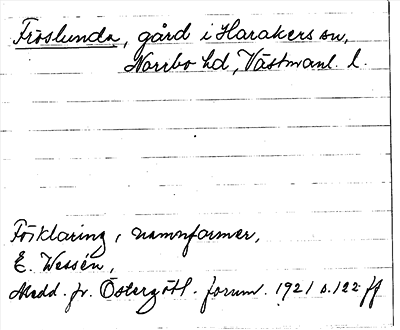 Fröslunda, gård i Harakers sn,
Norrbo hd, Västmanl. l.
Förklaring, namnformer,
E. Wessén,
Medd. fr. Östergötl. fornm. 1921 s. 122 ff